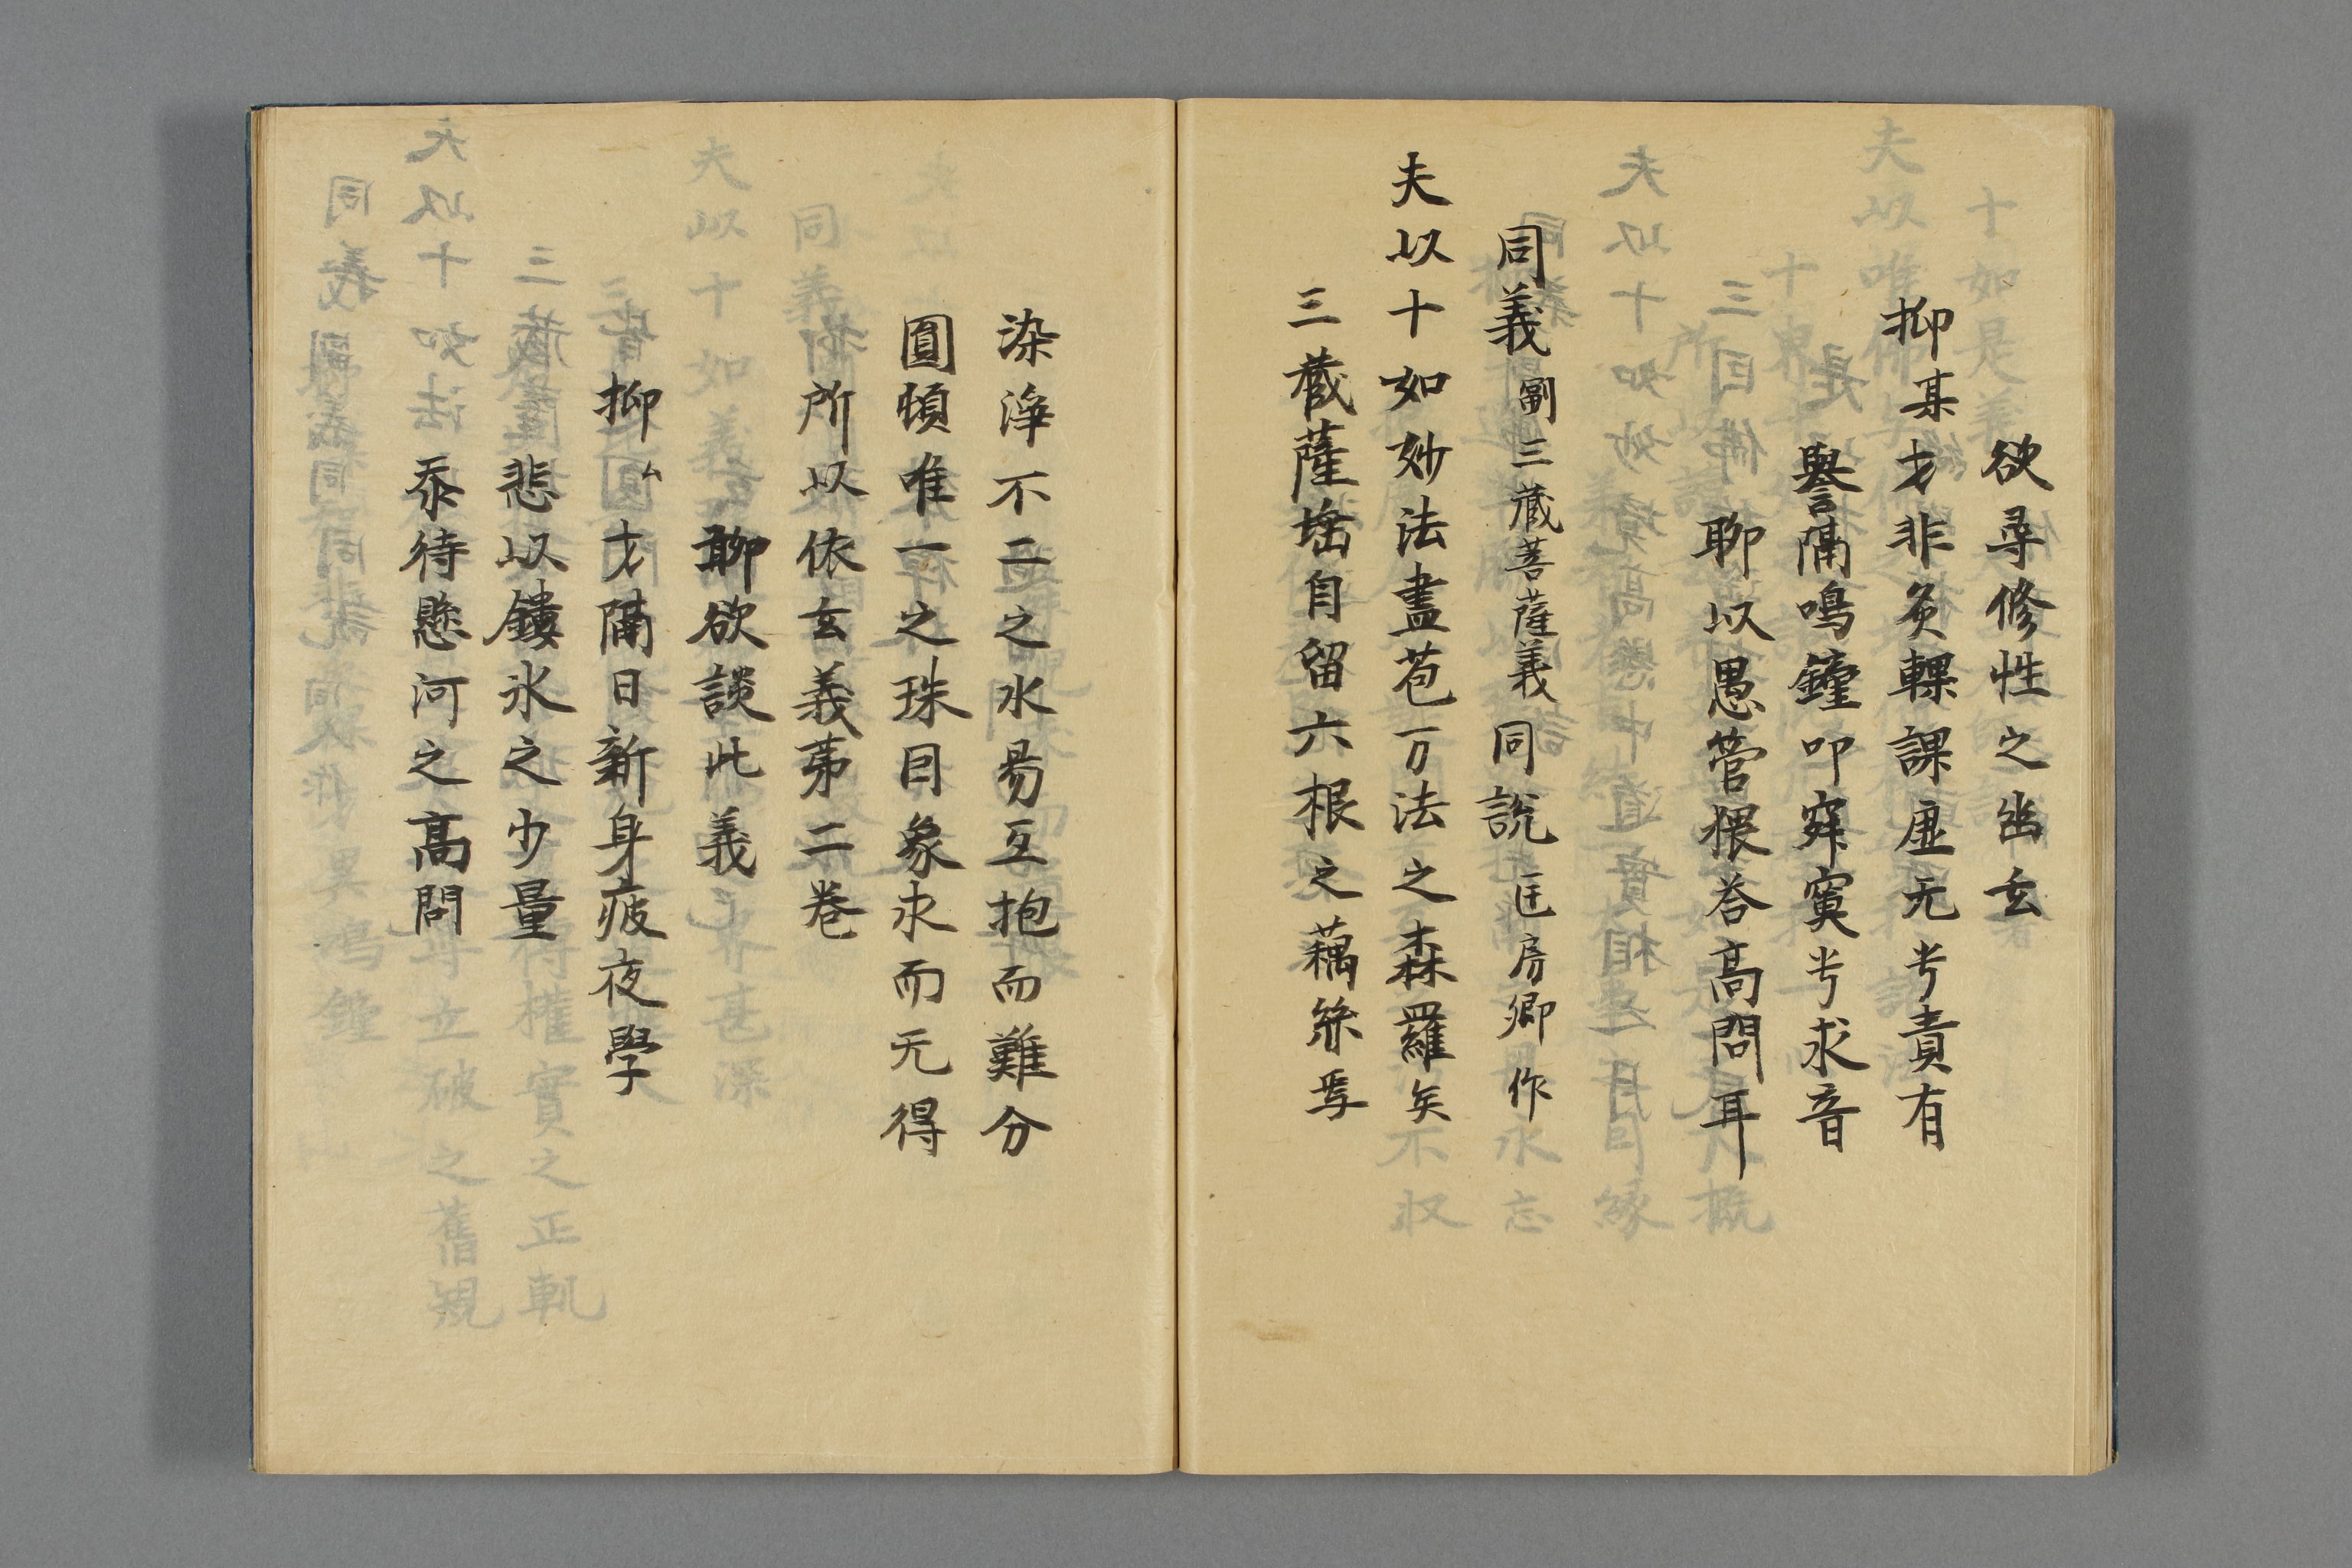 欲尋修性之幽玄
抑某才非炙輠課虛无兮責有
譽隔鳴鐘叩寂寞兮求音
聊以愚管猥答高問耳
同義副三藏菩薩義同說匡房卿作
夫以十如妙法盡苞万法之森羅矣
三藏薩埵自留六根之藕絲焉
染淨不二之水易互抱而難分
圓頓唯一之珠目象求而无得
所以依玄義第二卷
聊欲談此義
抑ム才隔日新身疲夜學
悲以鏤氷之少量
忝待懸河之高問